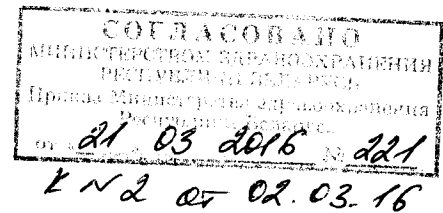 СОГЛАСОВАНО
МИНИСТЕРСТВОМ ЗДРАВООХРАНЕНИЯ
РЕСПУБЛИКИ БЕЛАРУСЬ
Приказ Министерства здравоохранения
Республики Беларусь
от 21 03 2016 № 221
к № 2 от 02.03.16